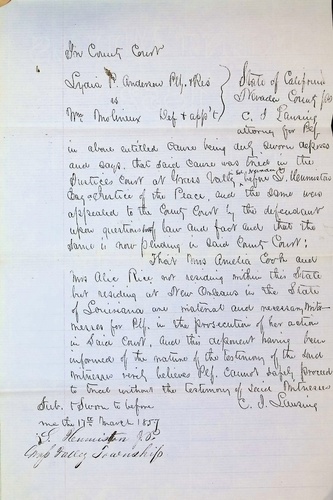 In County Court
Lydia P. Anderson Plf. & Res
vs
Wm Molineux Def & app't
State of California
Nevada County
C. J. Lansing
attorney for Plf.
in above entitled cause being duly sworn deposes
and says, that said cause was tried in the
Justices Court at Grass Valley before
Esq. Justice of the Peace, and the same was
appealed to the County Court by the defendant
upon questions of law and fact and that the
same is now pending in said County Court;
That Mrs Amelia Cook and
Mrs Alice Rice not residing within this State
but residing at New Orleans in the State
of Louisiana are material and necessary wit-
nesses for Plf. in the prosecution of her action
in said Court. And this deponent having been
informed of the nature of the testimony of the said
witnesses verily believes Plf. cannot safely proceed
to trial without the testimony of said Witnesses
Sub. & Sworn to before C. J. Lansing
me the 17th March 1857
J.P.
Grass Valley Township